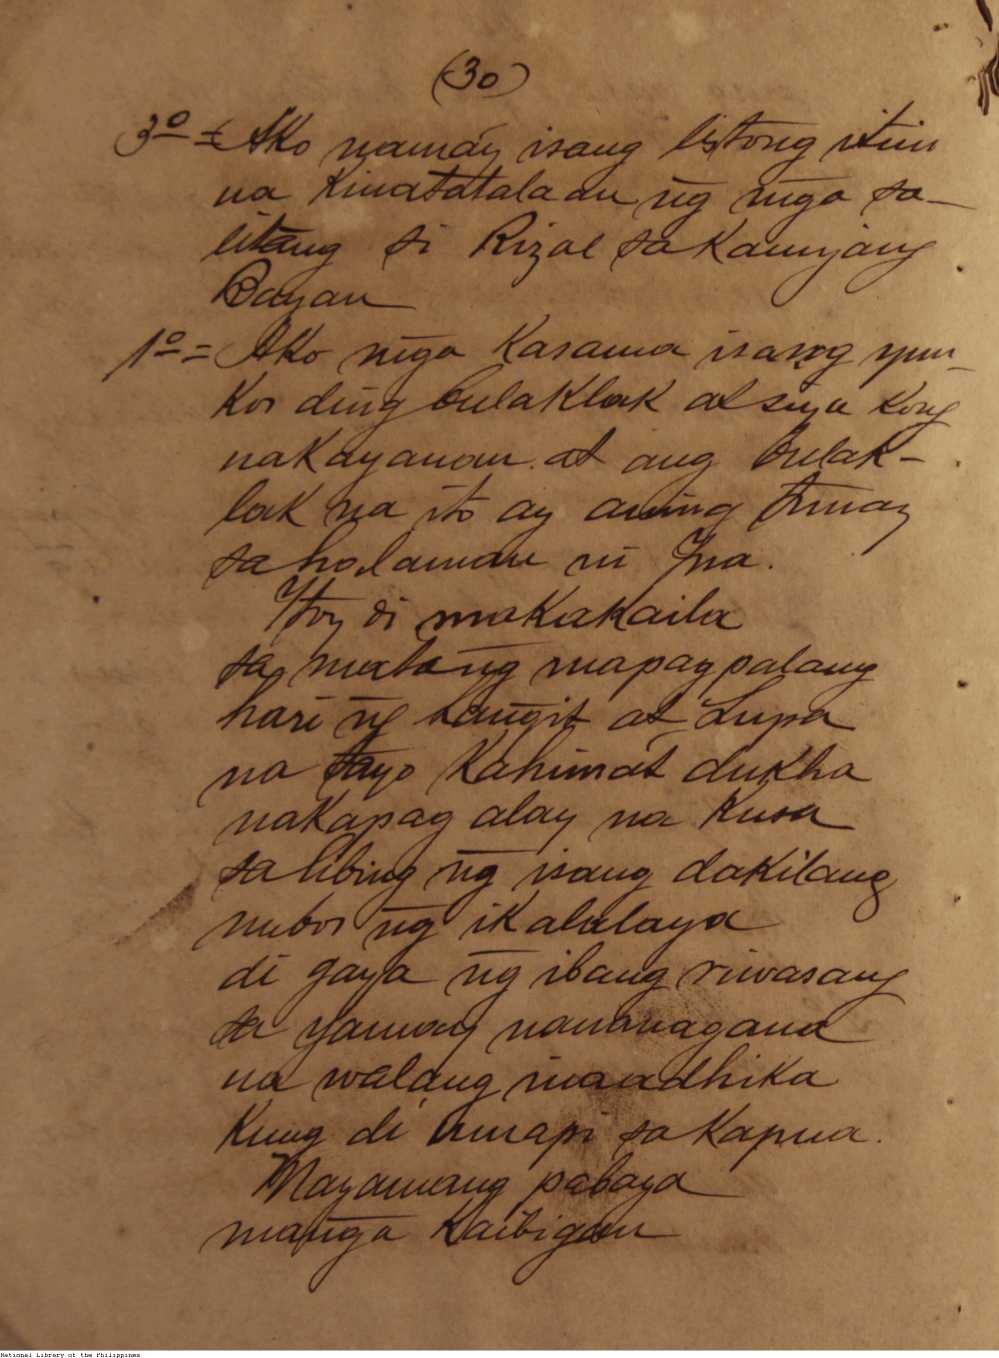 (30)
3º = Ako namáy isang listong itim
na kinatatalaan ng̃ mg̃a sa-
litang si Rizal sa kanyang
Bayan
1º = Ako mg̃a kasama isang pun-
kos ding bulaklak at siya kong
nakayanan at ang bulak-
lak na ito ay aming
sa halaman ni Ina.
Itoy di makakaila
sa matang mapagpalang
hari ng̃ lang̃it at Lupa
na tayo kahimat dukha
nakapag alay na kusa
sa libing ng̃ isang dakilang
nubos ng̃ ikalulaya
di gaya ng̃ ibang riwasang
sa yamay nananagana
na walang inaadhika
kung di umapi sa kapua.
Mayamang pabaya
mang̃a kaibigan
National Library of the Philippines